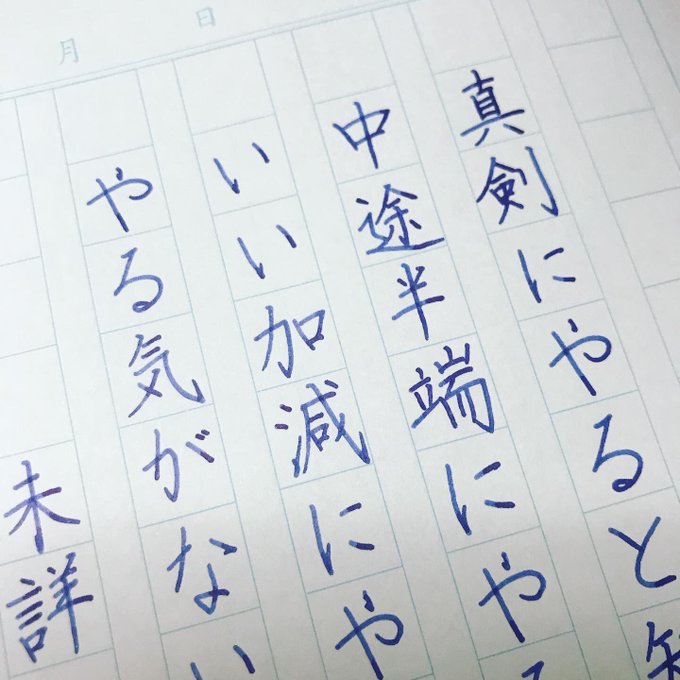 月 日
真剣にやると知
中途半端にやる
いい加減にや
やる気がない
未詳